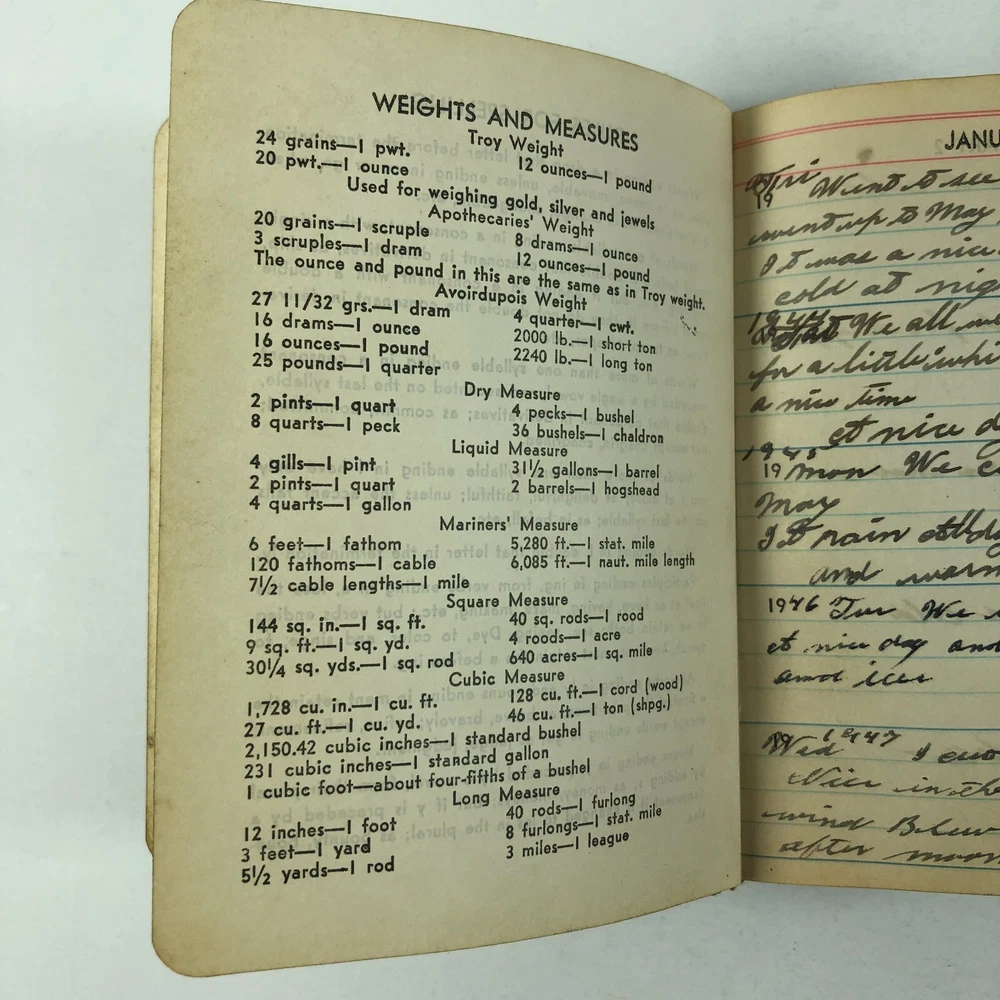 WEIGHTS AND MEASURES
Troy Weight
24 grains—1 pwt.
20 pwt.—1 ounce
12 ounces—1 pound
Used for weighing gold, silver and jewels
Apothecaries' Weight
20 grains—1 scruple
3 scruples—1 dram
8 drams—1 ounce
12 ounces—1 pound
The ounce and pound in this are the same as in Troy weight.
Avoirdupois Weight
27 11/32 grs.—1 dram
16 drams—1 ounce
16 ounces—1 pound
25 pounds—1 quarter
4 quarter—1 cwt.
2000 lb.—1 short ton
2240 lb.—1 long ton
Dry Measure
2 pints—1 quart
8 quarts—1 peck
4 pecks—1 bushel
36 bushels—1 chaldron
Liquid Measure
4 gills—1 pint
2 pints—1 quart
4 quarts—1 gallon
31½ gallons—1 barrel
2 barrels—1 hogshead
Mariners' Measure
6 feet—1 fathom
120 fathoms—1 cable
7½ cable lengths—1 mile
5,280 ft.—1 stat. mile
6,085 ft.—1 naut. mile length
Square Measure
144 sq. in.—1 sq. ft.
9 sq. ft.—1 sq. yd.
30¼ sq. yds.—1 sq. rod
40 sq. rods—1 rood
4 roods—1 acre
640 acres—1 sq. mile
Cubic Measure
1,728 cu. in.—1 cu. ft.
27 cu. ft.—1 cu. yd.
128 cu. ft.—1 cord (wood)
46 cu. ft.—1 ton (shpg.)
2,150.42 cubic inches—1 standard bushel
231 cubic inches—1 standard gallon
1 cubic foot—about four-fifths of a bushel
Long Measure
12 inches—1 foot
3 feet—1 yard
5½ yards—1 rod
40 rods—1 furlong
8 furlongs—1 stat. mile
3 miles—1 league
JANU
Fri Went to see
19
went up to May
It was a nice
cold at nig
1944
Sat We all we
for a little whi
a nice time
et nice d
1945
19 mon We c
May
It rain all da
and warm
1946 Tue We
et nice day and
and ice
Wed 1947 I
Nice in the
wind Blew
after noon